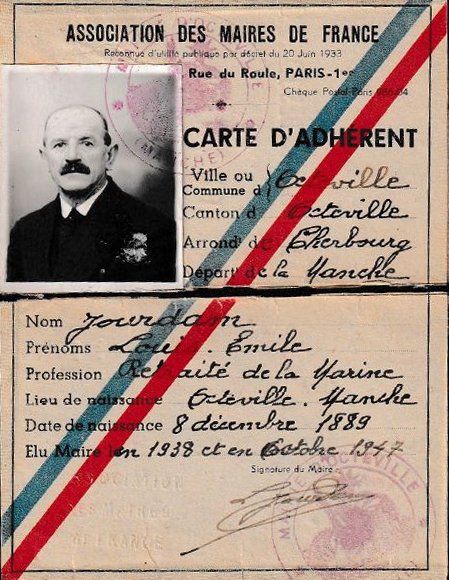 ASSOCIATION DES MAIRES DE FRANCE
Reconnue d'utilité publique par décret du 20 Juin 1933
Rue du Roule, PARIS-1er
Chèque Postal Paris
(MANCHE)
CARTE D'ADHÉRENT
Ville ou Commune d Octeville
Canton d Octeville
Arrondt de Cherbourg
Départt de la Manche
Nom Jourdam
Prénoms Louis. Emile
Profession Retraité de la Marine
Lieu de naissance Octeville. Manche
Date de naissance 8 décembre 1889
Elu Maire en 1938 et en Octobre 1947
Signature du Maire
OCTEVILLE
FRANCE